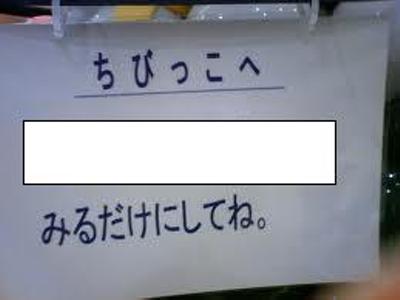 ちびっこへ
みるだけにしてね。